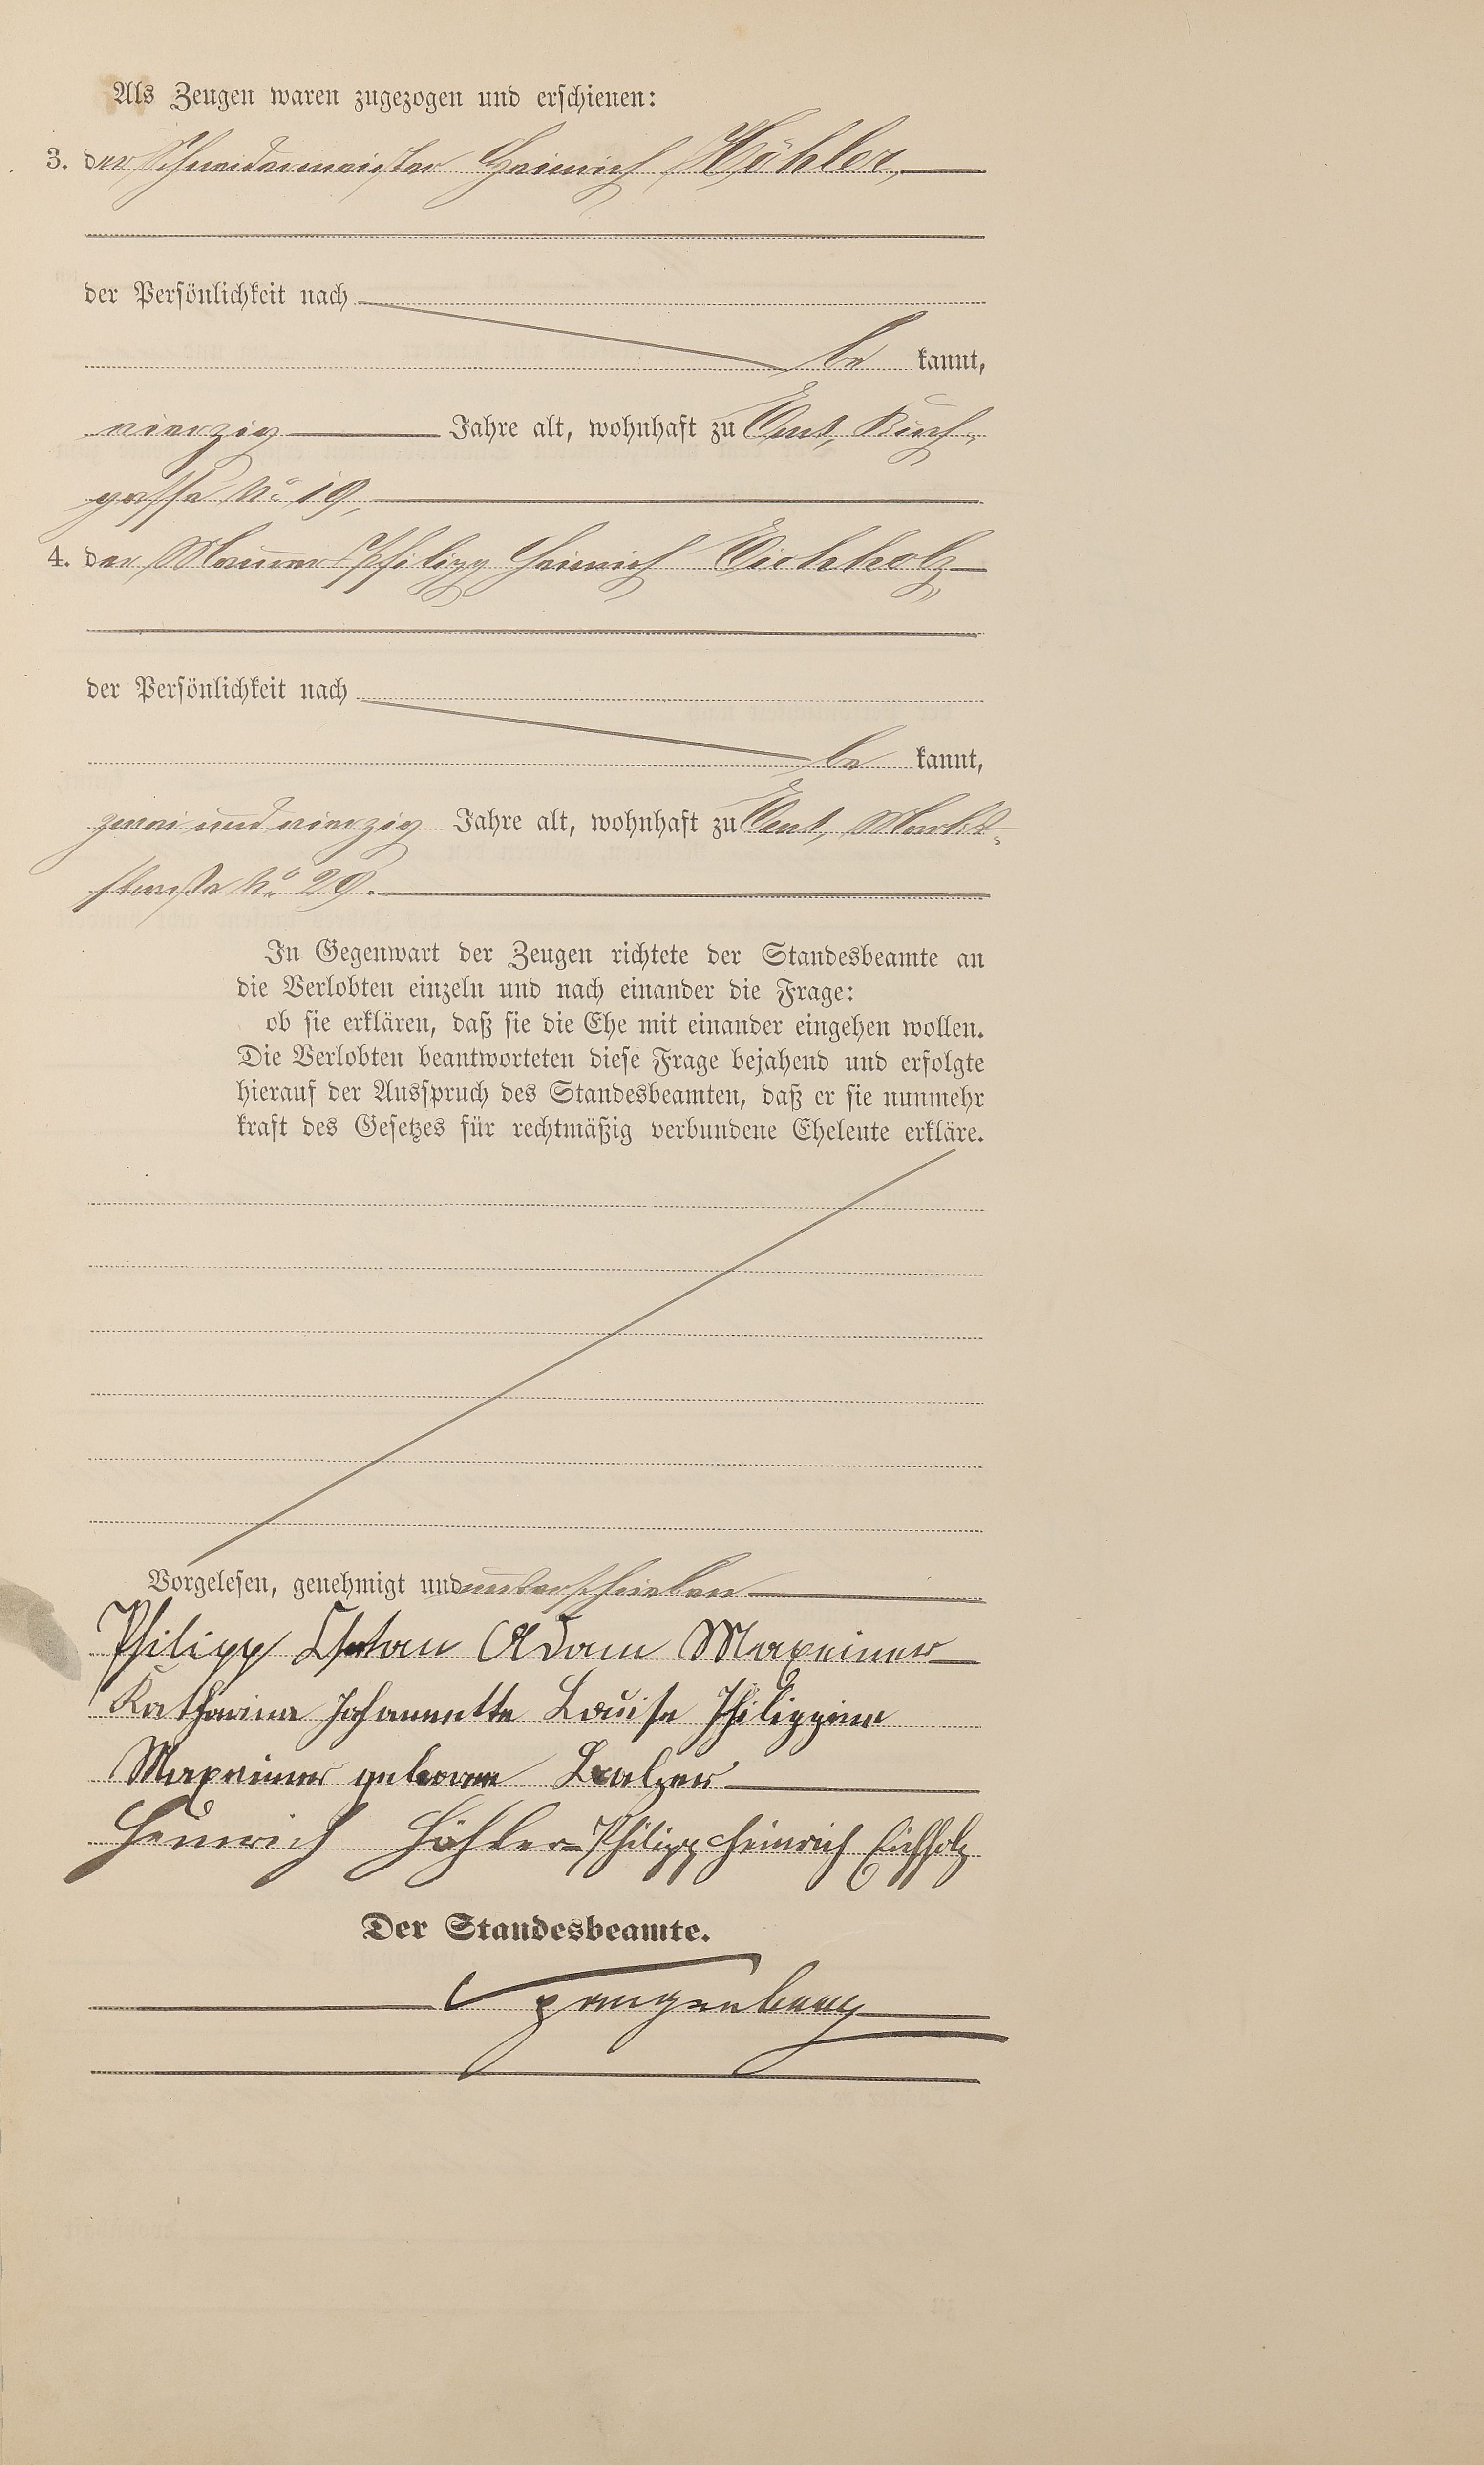 Als Zeugen waren zugezogen und erschienen:
3. der Schneidermeister Heinrich Höhler,
der Persönlichkeit nach
be kannt,
vierzig Jahre alt, wohnhaft zu Ems, Kirch-
gasse No 19,
4. der Maurer Philipp Heinrich Eichholz
der Persönlichkeit nach
be kannt,
zwei und vierzig Jahre alt, wohnhaft zu Ems, Markt-
straße No 29.
In Gegenwart der Zeugen richtete der Standesbeamte an
die Verlobten einzeln und nach einander die Frage:
ob sie erklären, daß sie die Ehe mit einander eingehen wollen.
Die Verlobten beantworteten diese Frage bejahend und erfolgte
hierauf der Ausspruch des Standesbeamten, daß er sie nunmehr
kraft des Gesetzes für rechtmäßig verbundene Eheleute erkläre.
Vorgelesen, genehmigt und unterschrieben
Philipp Adam Maxeiner
Katharina Johannette Louise Philippine
Maxeiner geborne Balzer
Heinrich Höhler Philipp Heinrich Eichholz
Der Standesbeamte.
Spangenberg